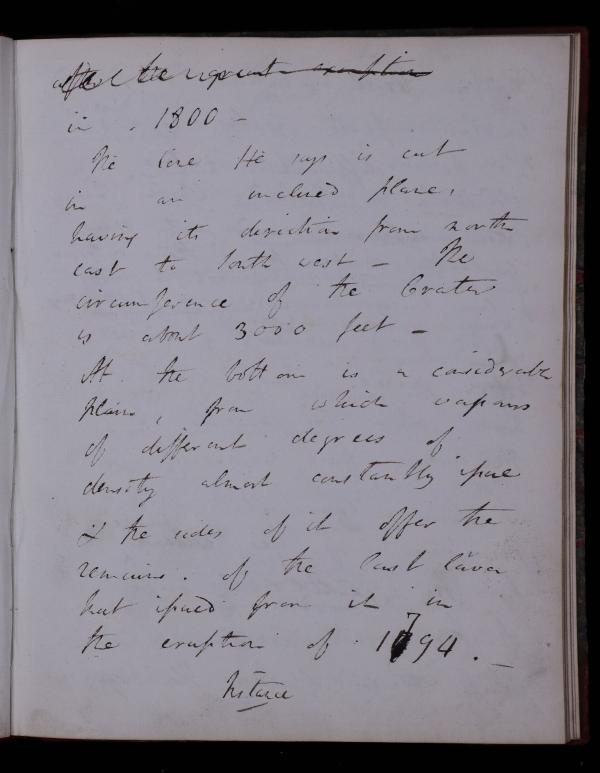 after the recent eruption
in . 1800 -
The Cone He says is cut
in an inclined plane,
having its direction from north
east to South west - The
circumference of the Crater
is about 3000 feet -
At the bottom is a considerable
plain, from which vapours
of different degrees of
density almost constantly issue
& the sides of it offer the
remains. of the last lava
that issued from it in
the eruption of 1794. -